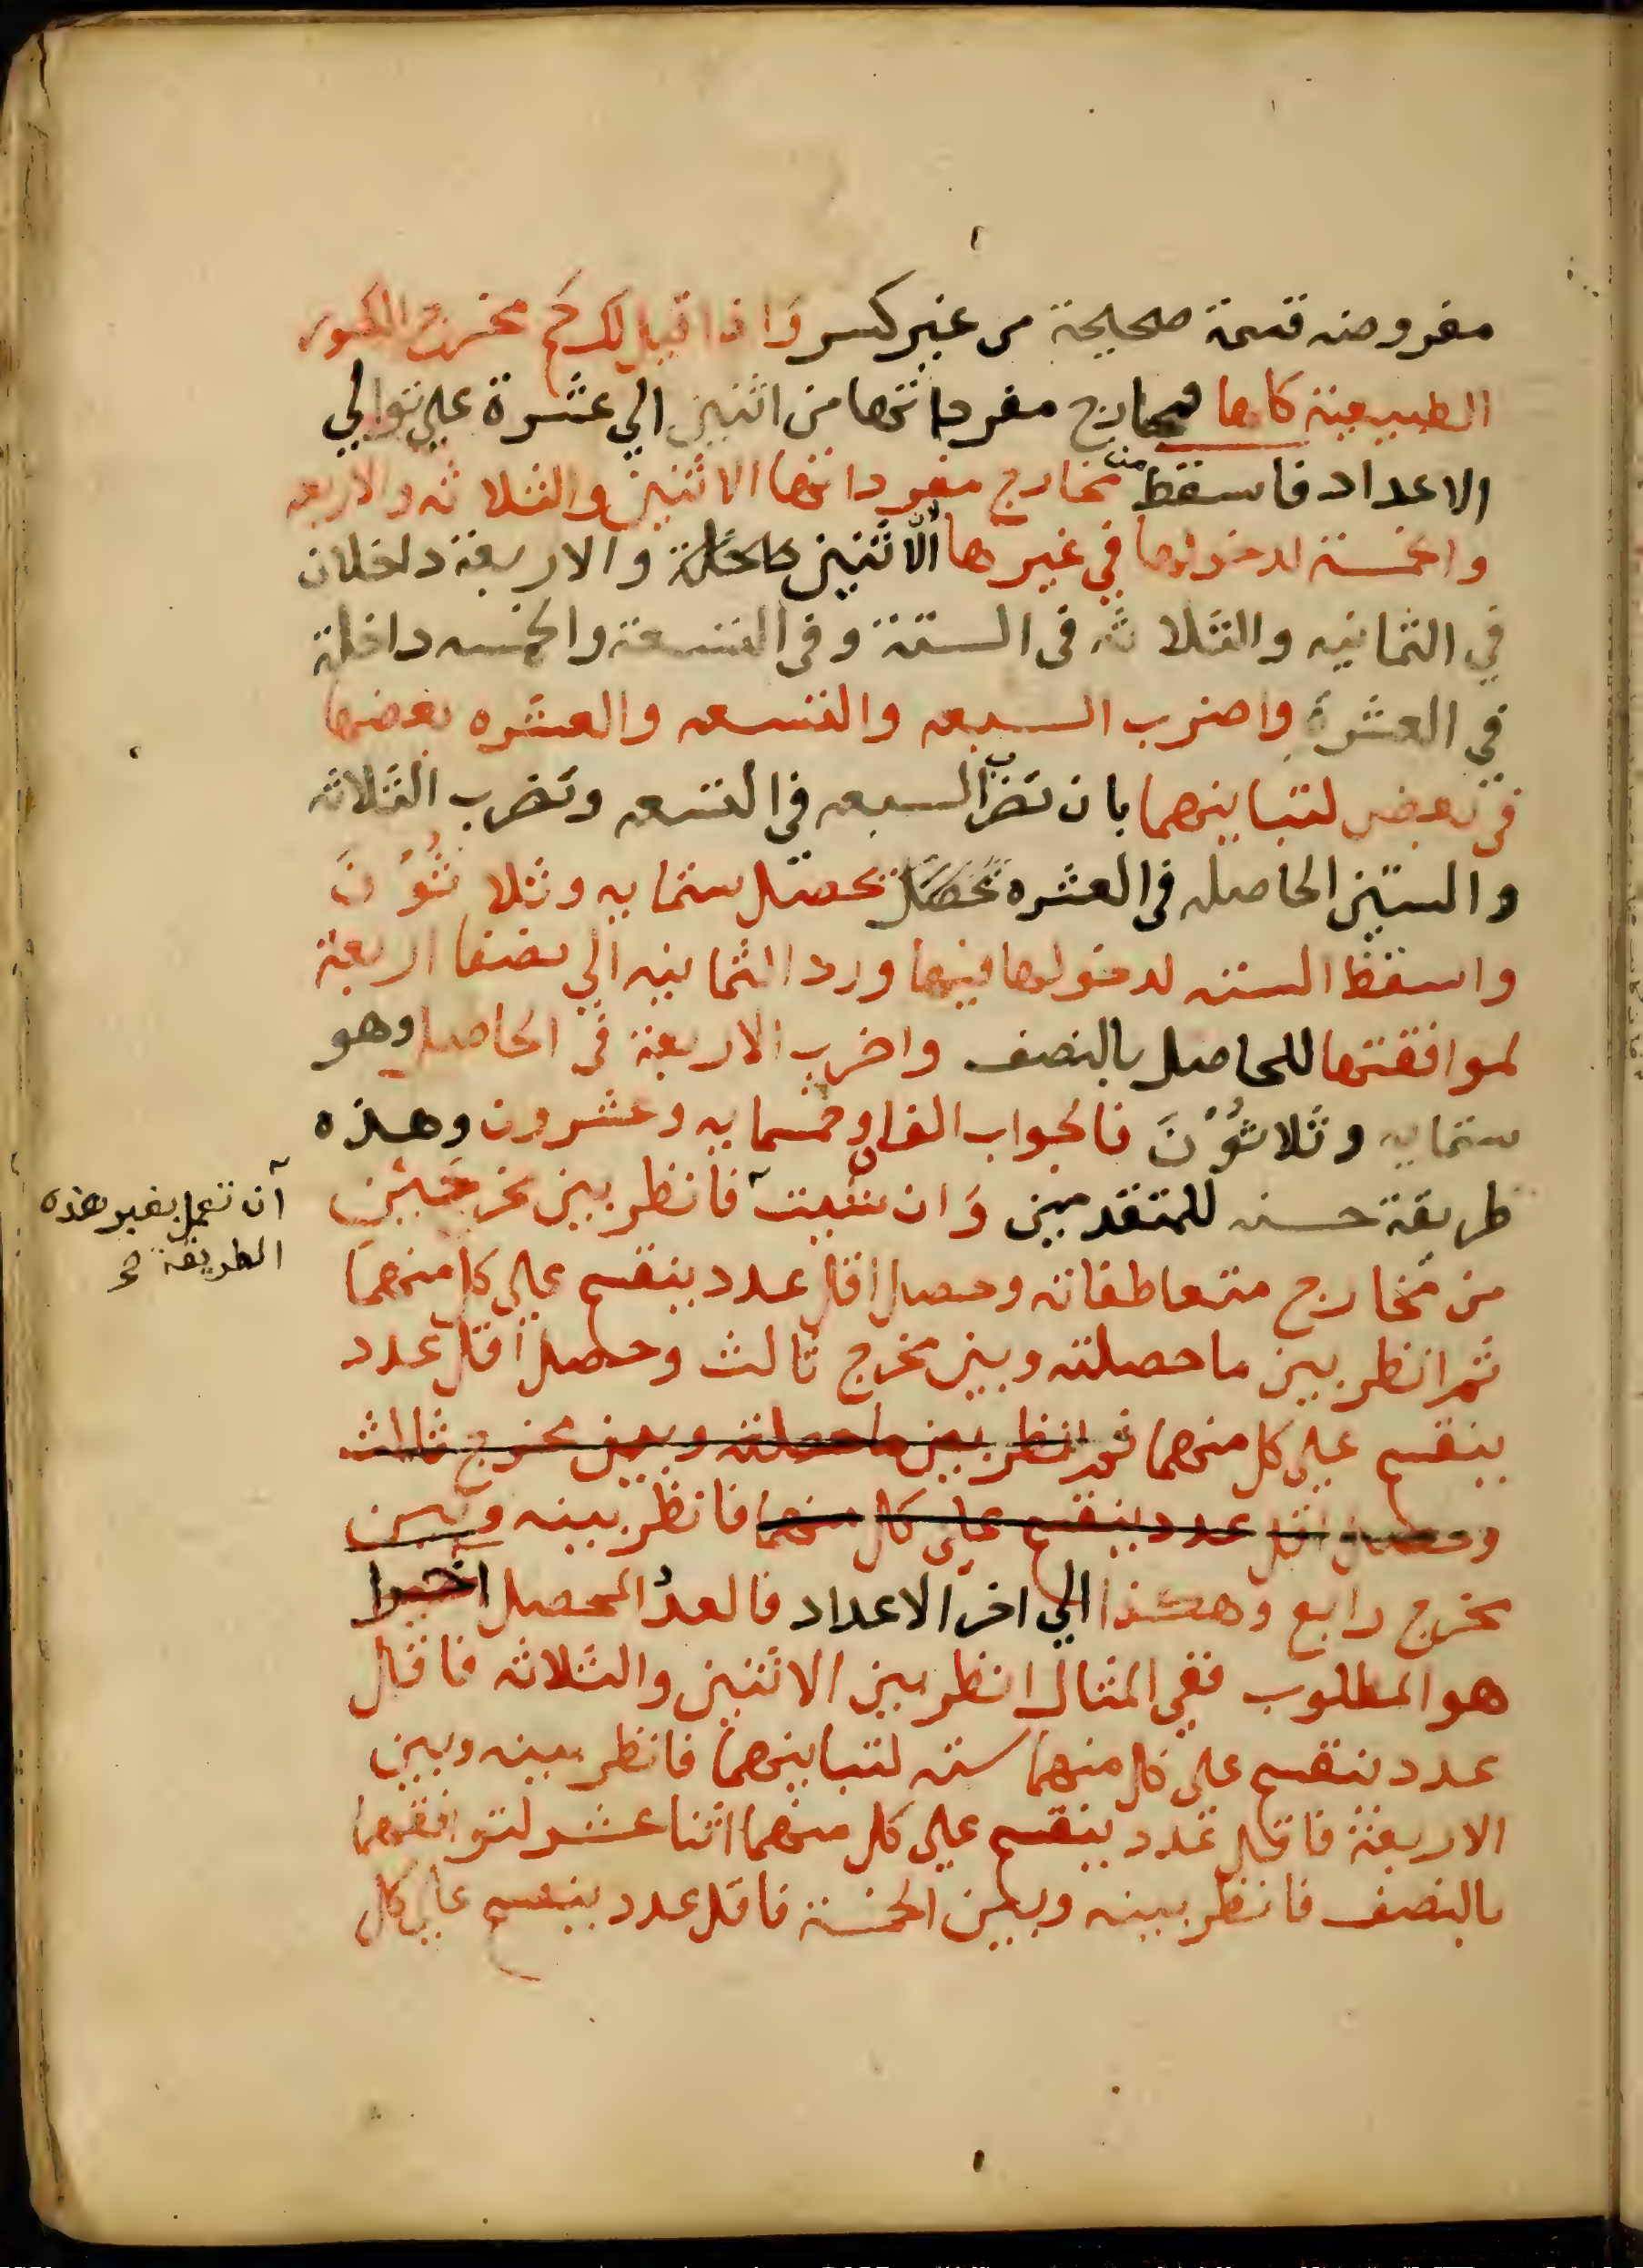 مفروضه قسمة صحيحة من غير كسر وَاذا قيل لك كم مخرج الكسور
الطبيعية كلها فمخارج مفرداتها من اثنين الي عشرة علي توالي
الاعداد فاسقط من مخارج مفرداتها الاثنين والثلاثه والاربعه
والخمسة لدخولها في غيرها الاثنين والاربعة داخلان
في الثمانيه والثلاثه في الستة وفي التسعة والخمسه داخلة
في العشرة واضرب السبعه والتسعه والعشره بعضها
في بعض لتباينهما بان تضرب السبعه في التسعه وتضرب الثلاثه
والستين الحاصله في العشره تحصل ستمايه وثلاثُوْنَ
واسقط السته لدخولها فيها ورد الثمانيه الي نصفها اربعة
لموافقتها للحاصل بالنصف واضرب الاربعة في الحاصل وهو
ستمايه وثلاثُوْنَ فالجواب الفان وخمسمايه وعشرون وهذه
طريقة حسنه للمتقدمين وَان شيت فانظر بين مخرجَين
آن تعمل بغير هذه
الطريقة
من مخارج متعاطفاته وحصل اقل عدد ينقسم علي كل منهما
ثم انظر بين ما حصلته وبين مخرج ثالث وحصل اقل عدد
ينقسم علي كل منهما ثم انظر بين ما حصلته وبين مخرج ثالث
وحصل اقل عدد ينقسم علي كل منهما فانظر بينه وبين
مخرج رابع وهكذا الي اخر الاعداد فالعدد المحصل اخيرا
هو المطلوب ففي المثال انظر بين الاثنين والثلاثه فاقل
عدد ينقسم علي كل منهما سته لتباينهما فانظر بينه وبين
الاربعة فاقل عدد ينقسم علي كل منهما اثنا عشر لتوافقهما
بالنصف فانظر بينه وبين الخمسة فاقل عدد ينقسم علي كل